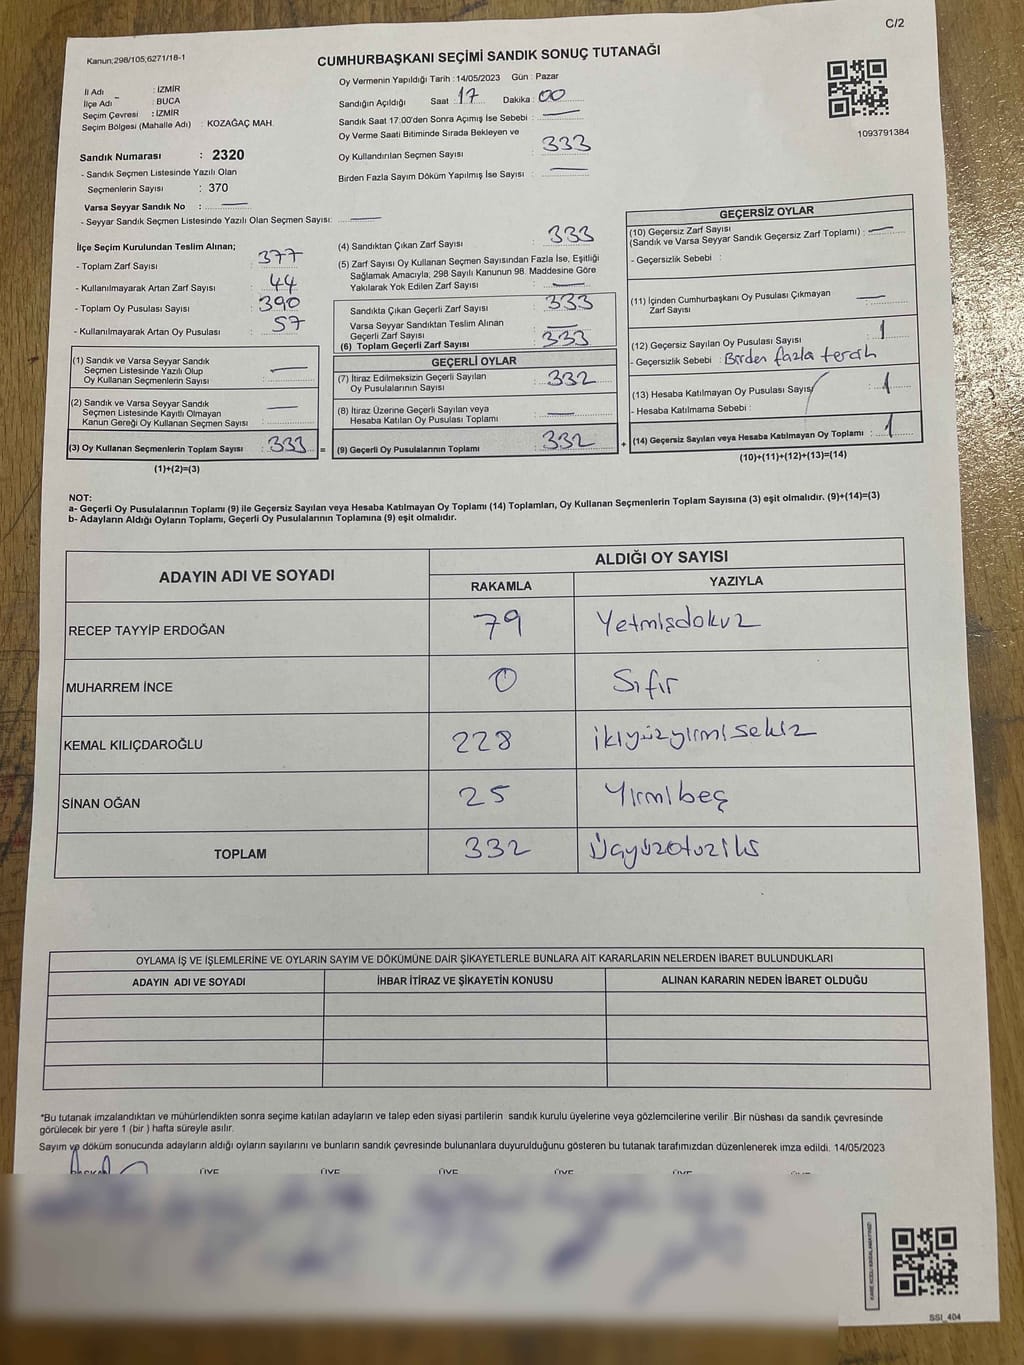 C/2
Kanun;298/105,6271/18-1
CUMHURBAŞKANI SEÇİMİ SANDIK SONUÇ TUTANAĞI
İl Adı : İZMİR
İlçe Adı : BUCA
Seçim Çevresi : İZMİR
Seçim Bölgesi (Mahalle Adı) : KOZAĞAÇ MAH.
Sandık Numarası : 2320
- Sandık Seçmen Listesinde Yazılı Olan
Seçmenlerin Sayısı : 370
Varsa Seyyar Sandık No :
- Seyyar Sandık Seçmen Listesinde Yazılı Olan Seçmen Sayısı:
Oy Vermenin Yapıldığı Tarih : 14/05/2023 Gün : Pazar
Sandığın Açıldığı Saat : 17 Dakika : 00
Sandık Saat 17:00'den Sonra Açımış İse Sebebi :
Oy Verme Saati Bitiminde Sırada Bekleyen ve
Oy Kullandırılan Seçmen Sayısı : 333
Birden Fazla Sayım Döküm Yapılmış İse Sayısı :
1093791384
İlçe Seçim Kurulundan Teslim Alınan;
- Toplam Zarf Sayısı : 377
- Kullanılmayarak Artan Zarf Sayısı : 44
- Toplam Oy Pusulası Sayısı : 390
- Kullanılmayarak Artan Oy Pusulası : 57
(1) Sandık ve Varsa Seyyar Sandık
Seçmen Listesinde Yazılı Olup
Oy Kullanan Seçmenlerin Sayısı :
(2) Sandık ve Varsa Seyyar Sandık
Seçmen Listesinde Kayıtlı Olmayan
Kanun Gereği Oy Kullanan Seçmen Sayısı :
(3) Oy Kullanan Seçmenlerin Toplam Sayısı : 333 =
(1)+(2)=(3)
(4) Sandıktan Çıkan Zarf Sayısı : 333
(5) Zarf Sayısı Oy Kullanan Seçmen Sayısından Fazla İse, Eşitliği
Sağlamak Amacıyla; 298 Sayılı Kanunun 98. Maddesine Göre
Yakılarak Yok Edilen Zarf Sayısı :
Sandıkta Çıkan Geçerli Zarf Sayısı : 333
Varsa Seyyar Sandıktan Teslim Alınan
Geçerli Zarf Sayısı
(6) Toplam Geçerli Zarf Sayısı : 333
GEÇERLİ OYLAR
(7) İtiraz Edilmeksizin Geçerli Sayılan
Oy Pusulalarının Sayısı : 332
(8) İtiraz Üzerine Geçerli Sayılan veya
Hesaba Katılan Oy Pusulası Toplamı :
(9) Geçerli Oy Pusulalarının Toplamı : 332 +
GEÇERSİZ OYLAR
(10) Geçersiz Zarf Sayısı
(Sandık ve Varsa Seyyar Sandık Geçersiz Zarf Toplamı) :
- Geçersizlik Sebebi :
(11) İçinden Cumhurbaşkanı Oy Pusulası Çıkmayan
Zarf Sayısı :
(12) Geçersiz Sayılan Oy Pusulası Sayısı : 1
- Geçersizlik Sebebi : Birden fazla tercih
(13) Hesaba Katılmayan Oy Pusulası Sayısı : 1
- Hesaba Katılmama Sebebi :
(14) Geçersiz Sayılan veya Hesaba Katılmayan Oy Toplamı : 1
(10)+(11)+(12)+(13)=(14)
NOT:
a- Geçerli Oy Pusulalarının Toplamı (9) ile Geçersiz Sayılan veya Hesaba Katılmayan Oy Toplamı (14) Toplamları, Oy Kullanan Seçmenlerin Toplam Sayısına (3) eşit olmalıdır. (9)+(14)=(3)
b- Adayların Aldığı Oyların Toplamı, Geçerli Oy Pusulalarının Toplamına (9) eşit olmalıdır.
ADAYIN ADI VE SOYADI
ALDIĞI OY SAYISI
RAKAMLA YAZIYLA
RECEP TAYYİP ERDOĞAN 79 Yetmişdokuz
MUHARREM İNCE 0 Sıfır
KEMAL KILIÇDAROĞLU 228 ikiyüzyirmisekiz
SİNAN OĞAN 25 Yirmibeş
TOPLAM 332 Üçyüzotuziki
OYLAMA İŞ VE İŞLEMLERİNE VE OYLARIN SAYIM VE DÖKÜMÜNE DAİR ŞİKAYETLERLE BUNLARA AİT KARARLARIN NELERDEN İBARET BULUNDUKLARI
ADAYIN ADI VE SOYADI İHBAR İTİRAZ VE ŞİKAYETİN KONUSU ALINAN KARARIN NEDEN İBARET OLDUĞU
*Bu tutanak imzalandıktan ve mühürlendikten sonra seçime katılan adayların ve talep eden siyasi partilerin sandık kurulu üyelerine veya gözlemcilerine verilir .Bir nüshası da sandık çevresinde
görülecek bir yere 1 (bir ) hafta süreyle asılır.
Sayım ve döküm sonucunda adayların aldığı oyların sayılarını ve bunların sandık çevresinde bulunanlara duyurulduğunu gösteren bu tutanak tarafımızdan düzenlenerek imza edildi. 14/05/2023
ÜYE ÜYE ÜYE ÜYE ÜYE
SSI_404